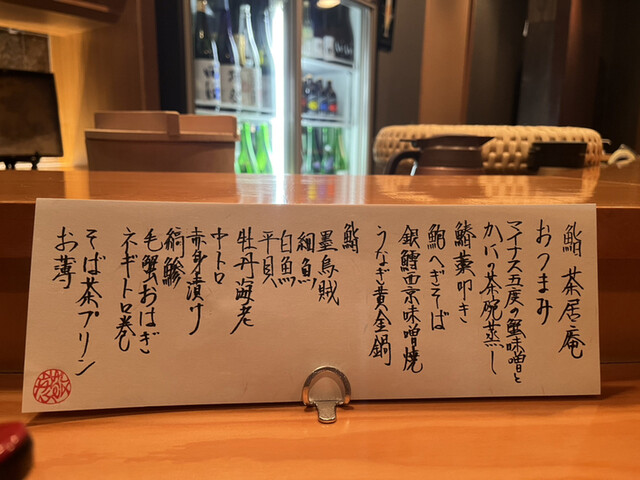 鮨 茶居庵
おつまみ
マイナス五度の蟹味噌と
かにの茶碗蒸し
鰆藁叩き
鮑へぎそば
銀鱈西京味噌焼
うなぎ黄金鍋
鮨
墨烏賊
細魚
白魚
平貝
牡丹海老
中トロ
赤身漬け
縞鯵
毛蟹おはぎ
ネギトロ巻
そば茶プリン
お薄